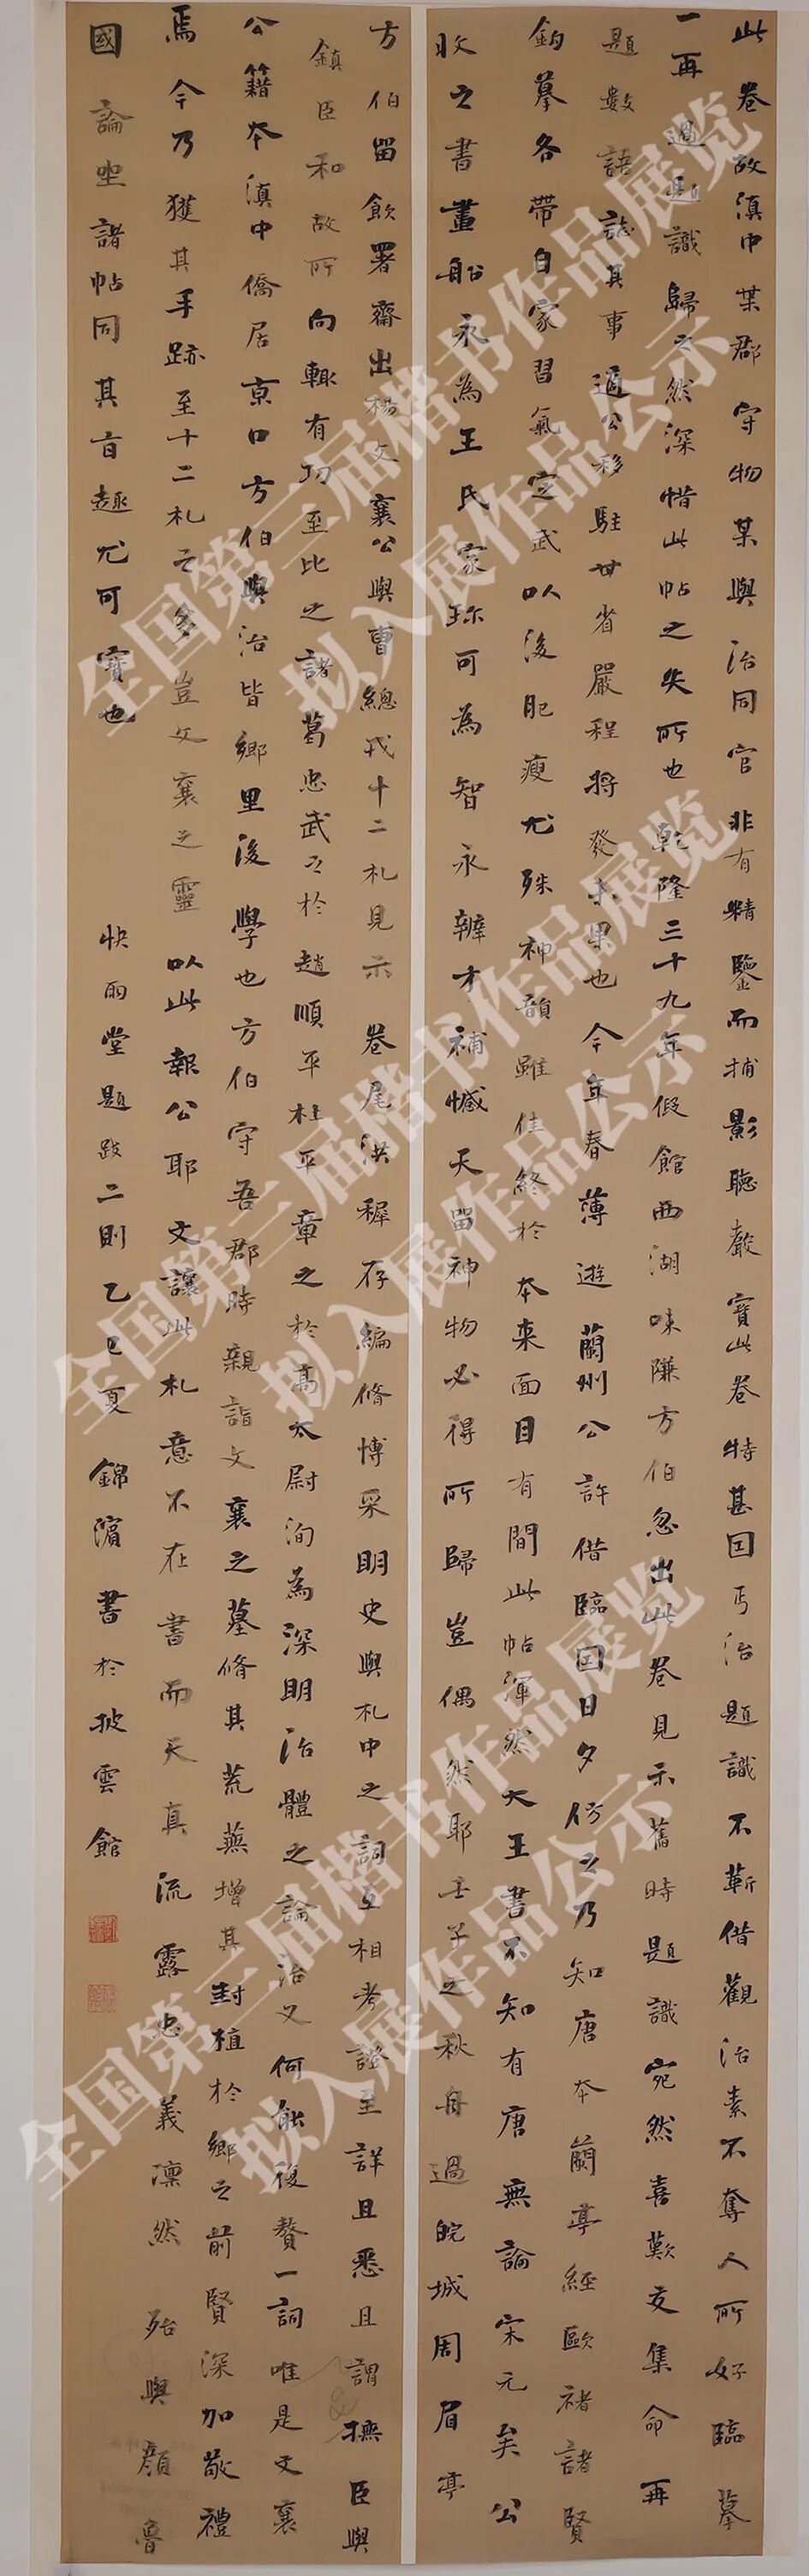 此卷故滇中某郡守物某與治同官非有精鑒而捕影聽聲寶此卷特甚因丐治題識不蘄借觀治素不奪人所好臨摹
一再過題識歸之然深惜此帖之失所也乾隆三十九年假館西湖味隒方伯忽出此卷見示舊時題識宛然喜歎交集命再
題數語誌其事適公移駐甘省嚴程將發未果也今年春薄遊蘭州公許借臨因日夕仿之乃知唐本蘭亭經歐褚諸賢
鈎摹各帶自家習氣定武以後肥瘦尤殊神韻雖佳終於本来面目有間此帖渾然大王書不知有唐無論宋元矣公
收之書畫船永為王氏家珎可為智永辨才補憾天留神物必得所歸豈偶然耶壬子之秋舟過皖城周眉亭
方伯留飲署齋出楊文襄公與曹總戎十二札見示卷尾洪稺存編脩博采明史與札中之詞互相考證至詳且悉且謂撫臣與
鎮臣和故所向輒有功至比之諸葛忠武之於趙順平杜平章之於高太尉洵為深明治體之論治又何能復贅一詞唯是文襄
公籍本滇中僑居京口方伯與治皆鄉里後學也方伯守吾郡時親詣文襄之墓脩其荒蕪增其封植於鄉之前賢深加敬禮
焉今乃獲其手跡至十二札之多豈文襄之靈以此報公耶文讓此札意不在書而天真流露忠義凜然殆與顏魯
國論坐諸帖同其旨趣尤可寶也
快雨堂題跋二則乙巳夏錦濱書於披雲館
全国第三届楷书作品展览
拟入展作品公示
全国第三届楷书作品展览
拟入展作品公示
全国第三届楷书作品展览
拟入展作品公示